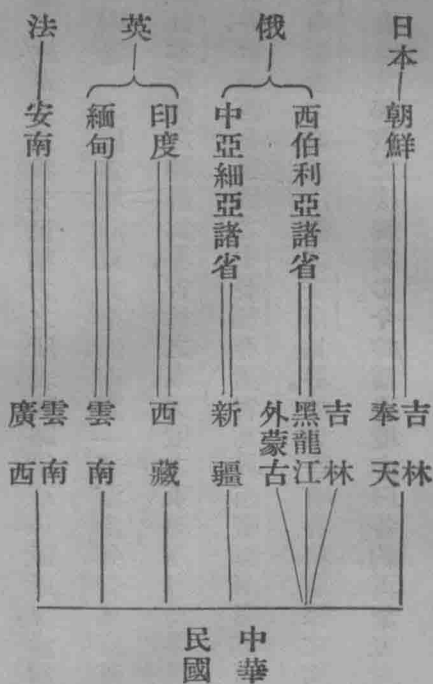 日本
朝鮮
吉林
奉天
俄
西伯利亞諸省
吉林
黑龍江
外蒙古
中亞細亞諸省
新疆
英
印度
西藏
緬甸
雲南
法
安南
雲南
廣西
中華
民國